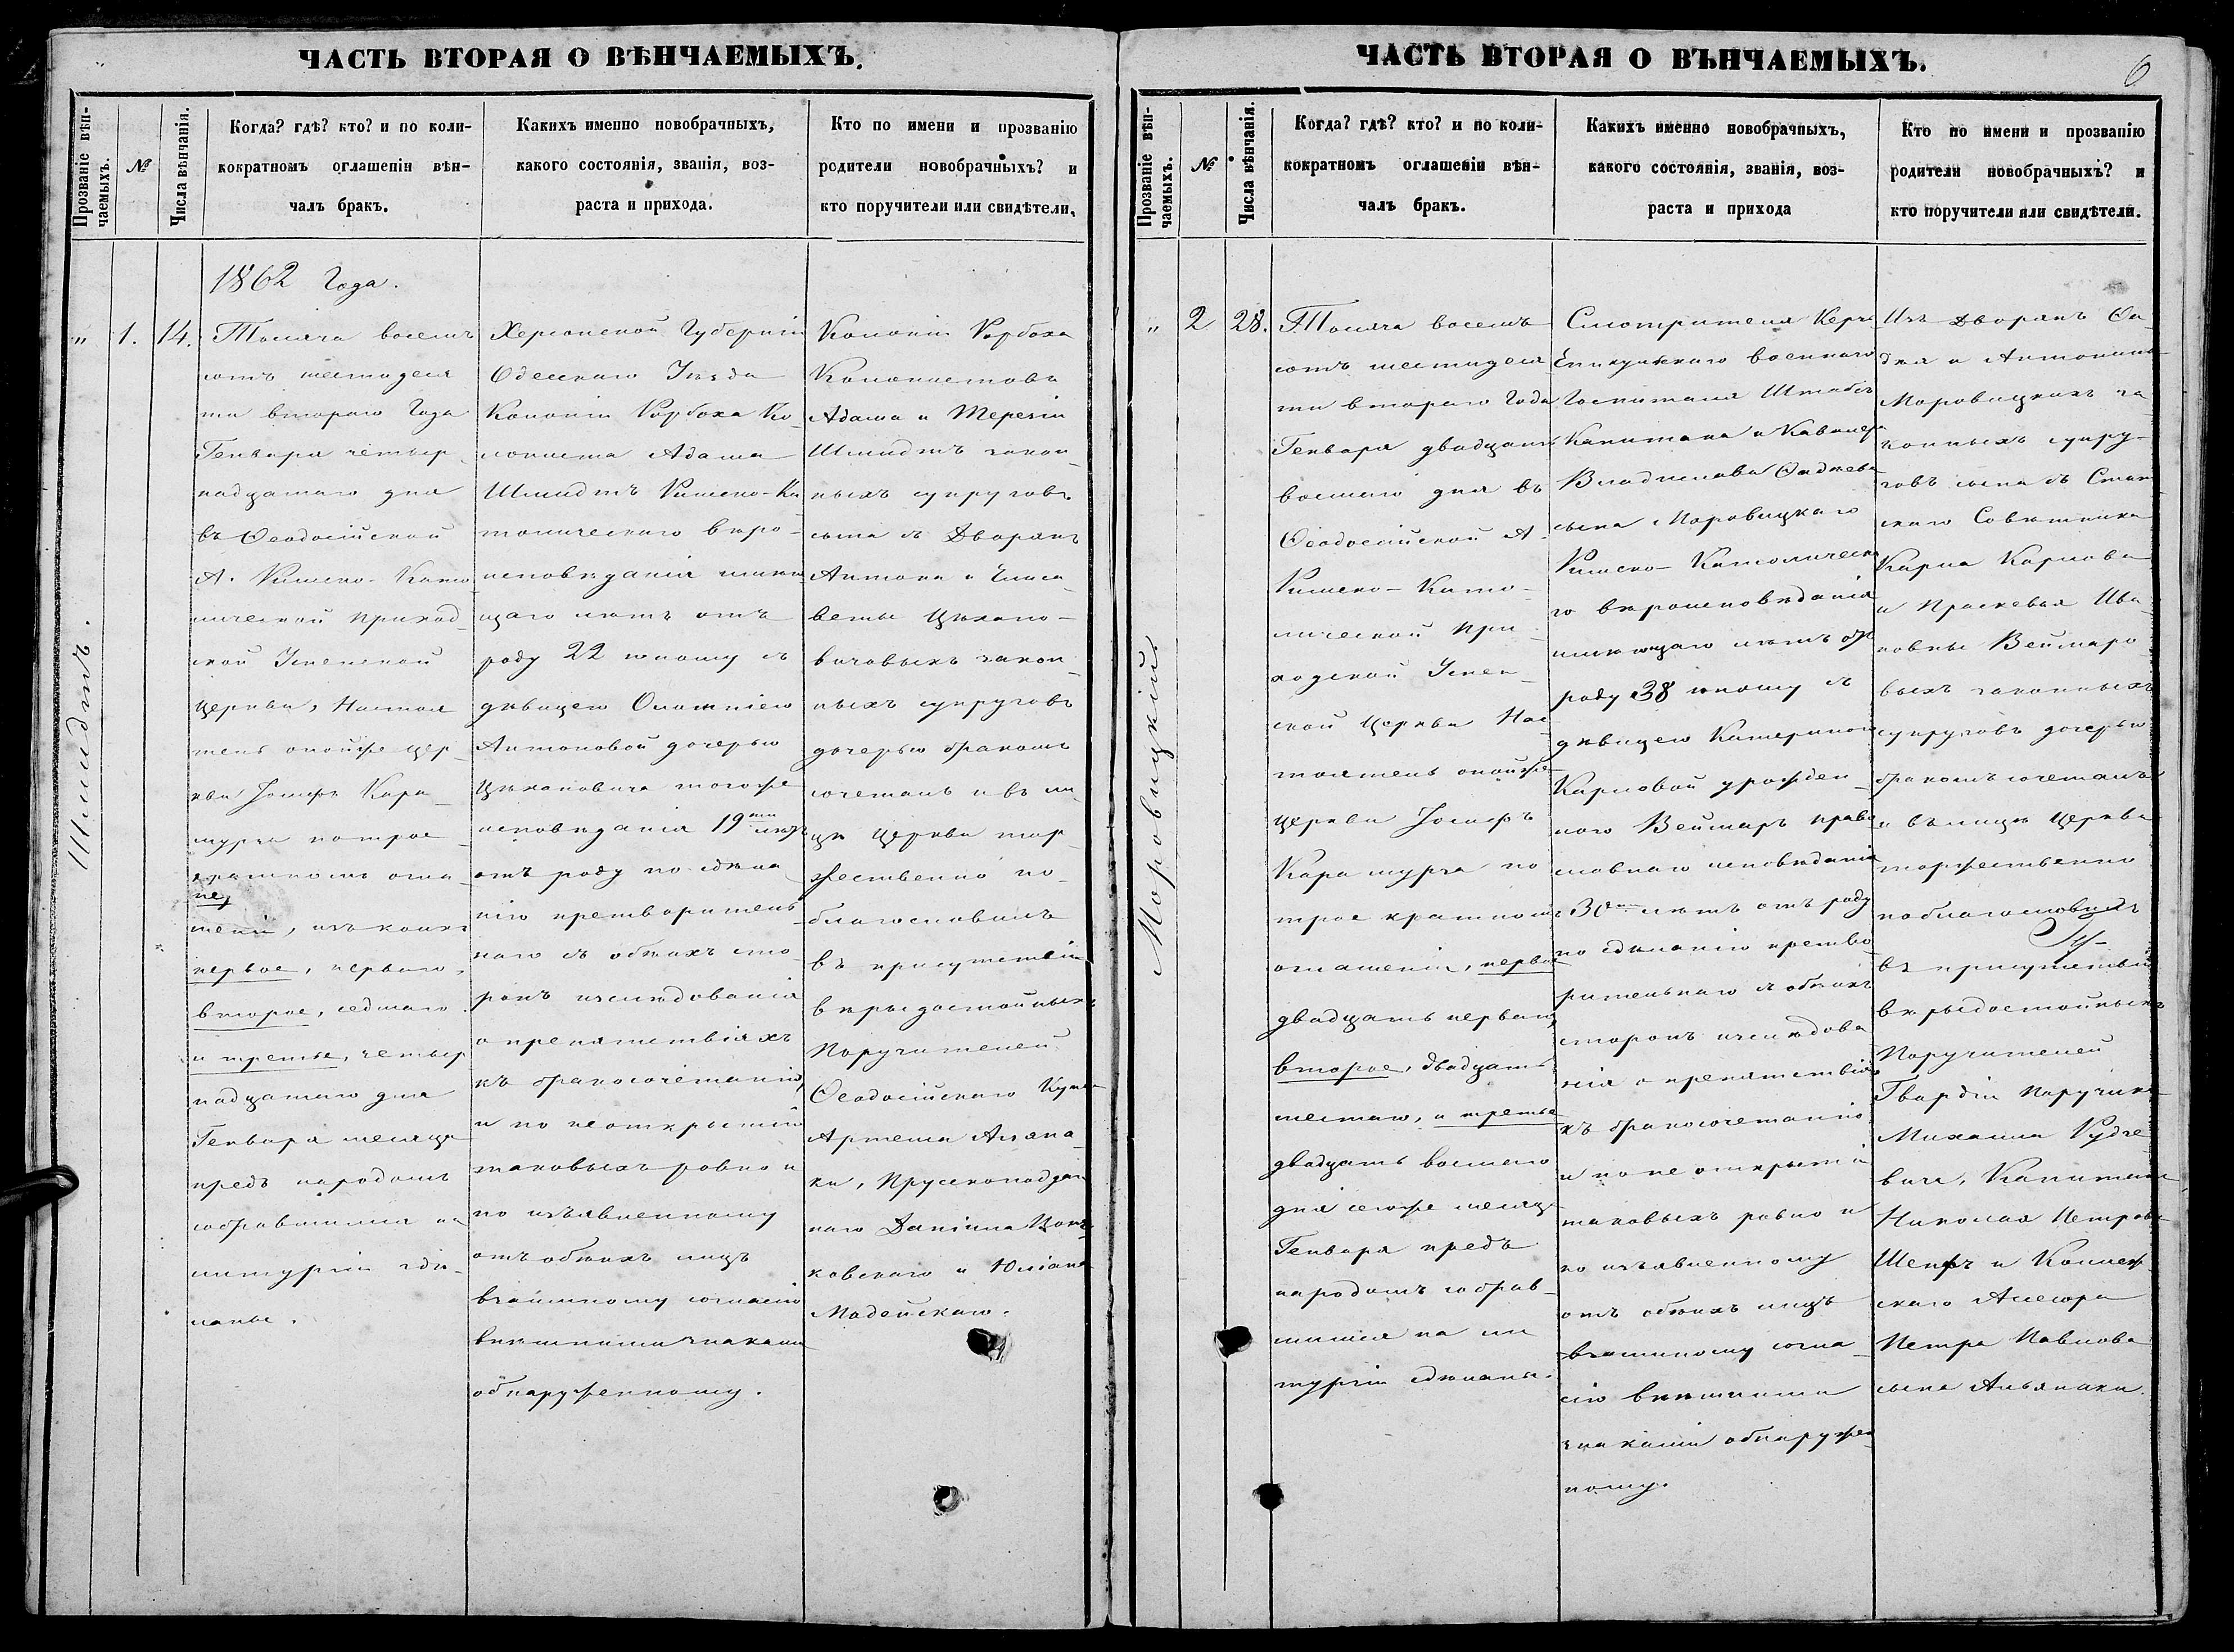 ЧАСТЬ ВТОРАЯ О ВѢНЧАЕМЫХЪ.
Прозваніе вѣн-
чаемыхъ.
№
Числа вѣнчанія.
Когда? гдѣ? кто? и по коли-
кократномъ оглашеніи вѣн-
чалъ бракъ.
Какихъ именно новобрачныхъ,
какого состоянія, званія, воз-
раста и прихода.
Кто по имени и прозванію
родители новобрачныхъ? и
кто поручители или свидѣтели.
Шмидтъ.
"
1.
14.
1862 Года.
Тысяча восемь
сотъ шестьдеся
ти втораго Года
Генваря четыр
надцатаго дня
въ Ѳеодосійской
А. Римско-Като
лической приход
ской Успенской
Церкви, Настоя
тель онойже Цер
кви Іосифъ Кара
мурза по трое
кратномъ огла
шеніи, изъ коихъ
первое, перваго,
второе, седмаго
и третье, четыр
надцатаго дня
Генваря месяца
предъ народомъ
собравшимся на
литургіи сдѣ-
ланы.
Херсонской Губерніи
Одесскаго Уѣзда
Колоніи Ко
лониста Адама
Шмидтъ Римско-Ка
толическаго вѣро-
исповѣданія имею
щаго лѣтъ отъ
роду 22 юношу съ
дѣвицею
Антоновой дочерью
Цѣхановича тогоже
исповѣданія 19ти лѣтъ
отъ роду по сдѣла
нію претваритель
наго съ обѣихъ сто
ронъ изслѣдованія
о препятствіяхъ
къ бракосочетанію,
и по неоткрытію
таковыхъ ровно и
по изъявленному
отъ обѣихъ лицъ
взаимному согласію
внѣшними знаками
обнаруженному.
Колоніи
Колонистовъ
Адама и Терезіи
Шмидтъ закон
ныхъ супруговъ
сына съ Дворянъ
Антона и Елиса
веты Цѣхано-
вичовыхъ закон
ныхъ супруговъ
дочерью бракомъ
сочеталъ и въ ли
цѣ Церкви тор
жественно по-
благословилъ
въ присутствіи
вѣрыдостойныхъ
Поручителей
Ѳеодосійскаго Купца
Артема Алзна
ки, Прусскоподдан
наго Даніила
ковскаго и Юліана
Модейскаго.
ЧАСТЬ ВТОРАЯ О ВѢНЧАЕМЫХЪ.
6
Прозваніе вѣн-
чаемыхъ.
№
Числа вѣнчанія.
Когда? гдѣ? кто? и по коли-
кократномъ оглашеніи вѣн-
чалъ бракъ.
Какихъ именно новобрачныхъ,
какого состоянія, званія, воз-
раста и прихода
Кто по имени и прозванію
родители новобрачныхъ? и
кто поручители или свидѣтели.
Моровицкій.
"
2
28.
Тысяча восемь
сотъ шестьдеся
ти втораго Года
Генваря двадцать
восьмаго дня въ
Ѳеодосійской А.
Римско-Като-
лической При
ходской Успен
ской Церкви Нас
тоятель онойже
Церкви Іосифъ
Карамурза по
трое кратномъ
оглашеніи, первое
двадцать перваго,
второе, двадцать
шестаго, и третье
двадцать восьмаго
дня сегоже месяца
Генваря предъ
народомъ собрав-
шимся на ли
тургіи сдѣланы.
Смотрителя Керчь
Еникульскаго военнаго
Госпиталя Штабсъ
Капитана и Кавалера
Владислава
сына Моровицкаго
Римско-Католическа
го вѣроисповѣданія
имѣющаго лѣтъ отъ
роду 38 юношу съ
дѣвицею Катериною
Карловой урожден
ною Веймаръ право
славнаго исповѣданія
30 лѣтъ отъ роду
по сдѣланію претво
рительнаго съ обѣихъ
сторонъ изслѣдова
нія о препятствіяхъ
къ бракосочетанію
и по не открытіи
таковыхъ ровно и
по изъявленному
отъ обѣихъ лицъ
взаимному согла
сію внѣшними
знаками обнаружен
ному.
Изъ Дворянъ
и Антонины
Моровицкихъ за
конныхъ супру-
говъ сына съ Стат
скаго Совѣтника
Карла Карлова
и Прасковьи Ива
новны Веймаро
выхъ законныхъ
супруговъ дочерью
бракомъ сочеталъ
и въ лицѣ Церкви
торжественно
поблагословилъ
въ присутствіи
вѣрыдостойныхъ
Поручителей
Гвардіи Поручика
Михаила Рудзе
вича, Капитана
Николая Петрова
и Коллеж
скаго Асесора
Петра Павлова
сына Альянаки.